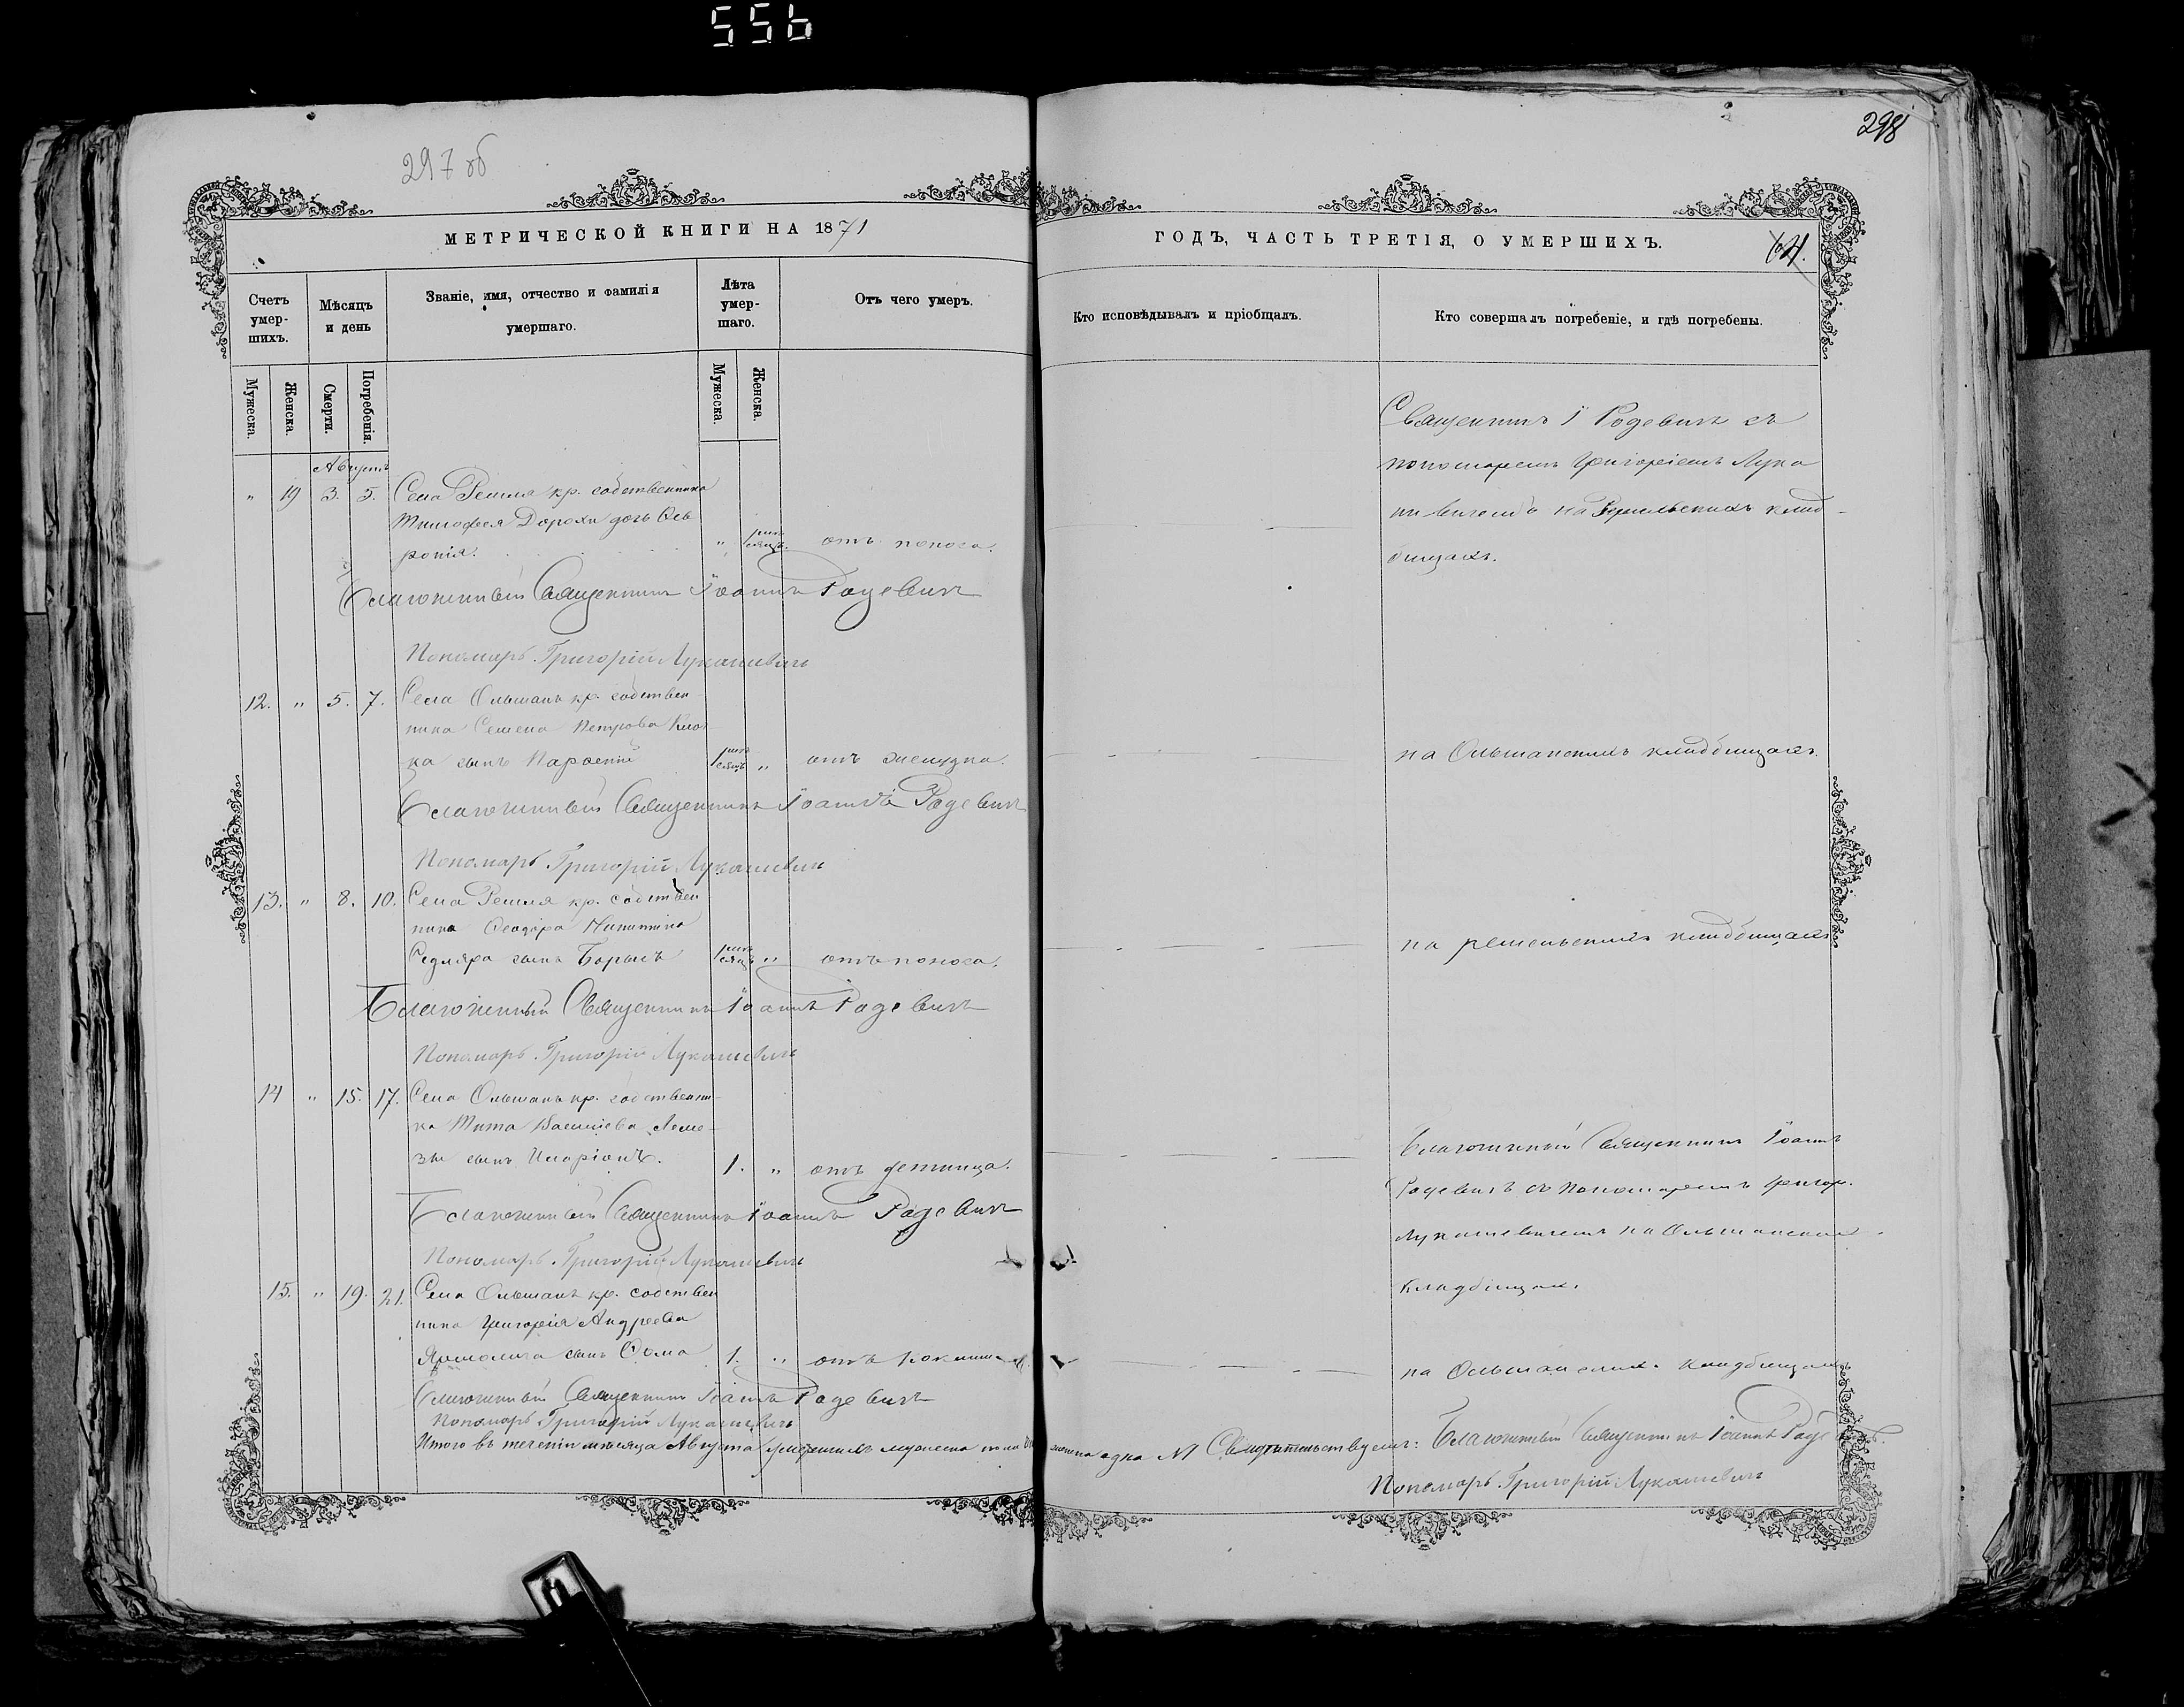 556
297 об
298
МЕТРИЧЕСКОЙ КНИГИ НА 1871
ГОДЪ, ЧАСТЬ ТРЕТІЯ, О УМЕРШИХЪ.
64.
Счетъ умер-шихъ.
Мѣсяцъ и день
Званіе, имя, отчество и фамилія
умершаго.
Лѣта умер-шаго.
Отъ чего умеръ.
Кто исповѣдывалъ и пріобщалъ.
Кто совершалъ погребеніе, и гдѣ погребены.
Мужеска.
Женска.
Смерти.
Погребенія.
Мужеска.
Женска.
Августъ
" 19 3. 5. Села кр. собственника
Тимофея Дорохи дочь Ев
ронія. " 1 отъ поноса.
Священникъ І Родевичъ съ
пономаремъ Григоріемъ Лука
шевичемъ на клад-
бищахъ.
Благочинный Священникъ Іоаннъ Родевичъ
Пономарь Григорій Лукашевичъ
12. " 5. 7. Села Ольшанъ кр. собствен
ника Семена Петрова
ка сынъ 1 " отъ желудка.
на Ольшанскихъ кладбищахъ.
Благочинный Священникъ Іоаннъ Родевичъ
Пономарь Григорій Лукашевичъ
13. " 8. 10. Села кр. собствен
ника Ѳеодора Никитина
Седляра сынъ Борисъ 1 " отъ поноса.
на кладбищахъ
Благочинный Священникъ Іоаннъ Родевичъ
Пономарь Григорій Лукашевичъ
14 " 15. 17. Села Ольшанъ кр. собственни-
ка Тита Василіева Леме-
зы сынъ Иларіонъ. 1. " отъ
Благочинный Священникъ Іоаннъ
Родевичъ съ Пономаремъ Григор.
Лукашевичемъ на Ольшанскихъ
кладбищахъ.
Благочинный Священникъ Іоаннъ Родевичъ
Пономарь Григорій Лукашевичъ
15. " 19. 21. Села Ольшанъ кр. собствен
ника Григорія Андреева
сынъ Ѳома 1. " отъ
на Ольшанскихъ кладбищахъ
Благочинный Священникъ Іоаннъ Родевичъ
Пономарь Григорій Лукашевичъ
Итого въ теченіи мѣсяца Августа умершихъ мужеска пола женска одна Свидѣтельствуемъ: Благочинный Священникъ Іоаннъ Родевичъ.
Пономарь Григорій Лукашевичъ